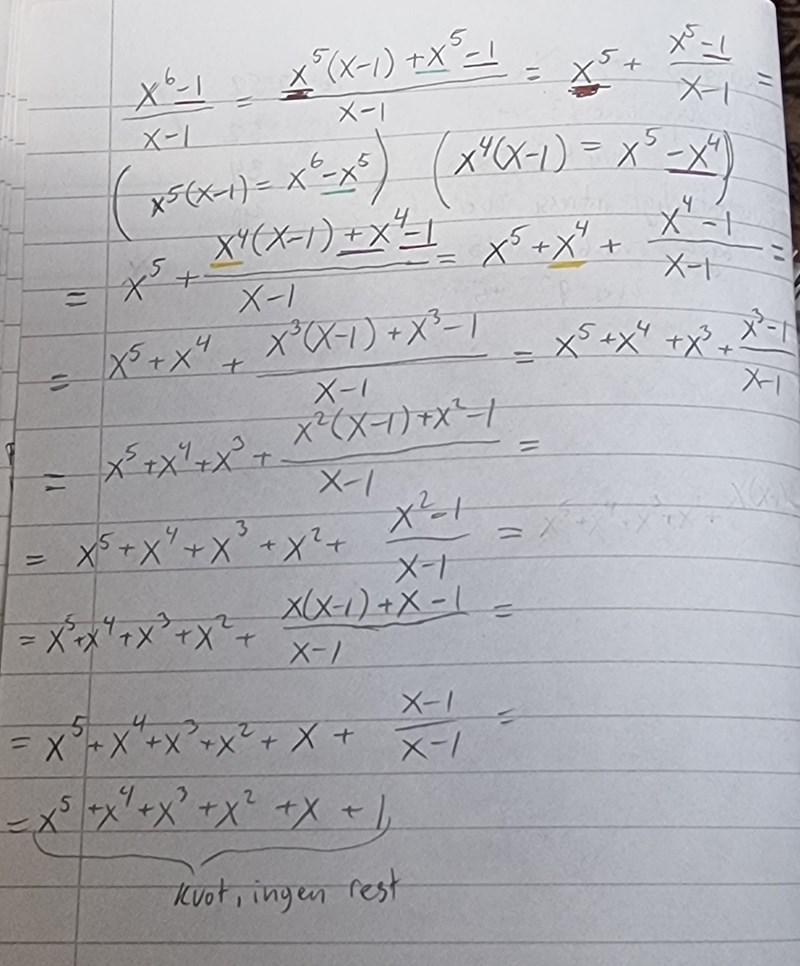 (x⁶-1)/(x-1) = (x⁵(x-1)+x⁵-1)/(x-1) = x⁵ + (x⁵-1)/(x-1) =
(x⁵(x-1) = x⁶-x⁵) (x⁴(x-1) = x⁵-x⁴)
= x⁵ + (x⁴(x-1)+x⁴-1)/(x-1) = x⁵+x⁴ + (x⁴-1)/(x-1) =
= x⁵+x⁴ + (x³(x-1)+x³-1)/(x-1) = x⁵+x⁴+x³+ (x³-1)/(x-1)
= x⁵+x⁴+x³+ (x²(x-1)+x²-1)/(x-1) =
= x⁵+x⁴+x³+x²+ (x²-1)/(x-1) =
= x⁵+x⁴+x³+x²+ (x(x-1)+x-1)/(x-1) =
= x⁵+x⁴+x³+x²+x+ (x-1)/(x-1) =
= x⁵+x⁴+x³+x²+x+1
kvot, ingen rest